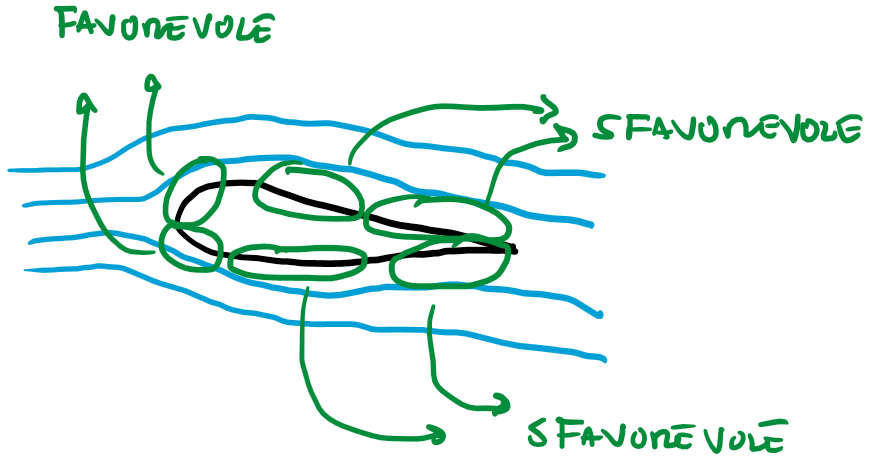 FAVOREVOLE
SFAVOREVOLE
SFAVOREVOLE